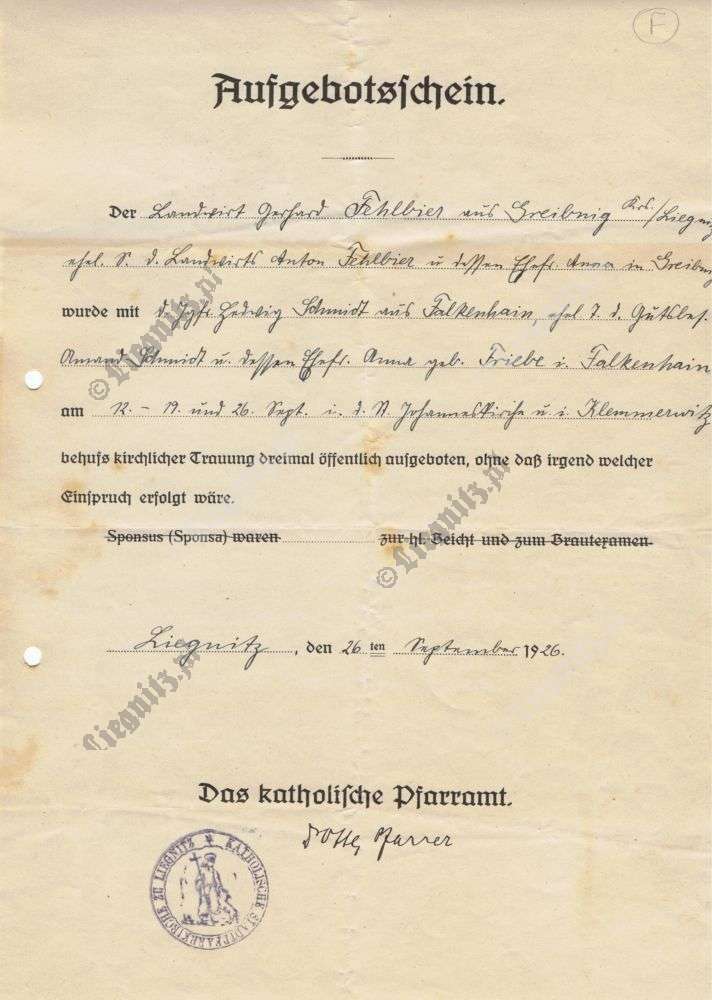 F
Aufgebotsschein.
Der Landwirt Gerhard Fehlbier aus Greibnig Krs./Liegnitz
ehel. S. d. Landwirts Anton Fehlbier u dessen Ehefr Anna in Greibnig
wurde mit d. Jgfr. Hedwig Schmidt aus Falkenhain, ehel T. d. Gutsbes.
Amand Schmidt u. dessen Ehefr. Anna geb. Friebe i. Falkenhain
am 12. – 19. und 26. Sept. i. d. St. Johanneskirche u. i. Klemmerwitz
behufs kirchlicher Trauung dreimal öffentlich aufgeboten, ohne daß irgend welcher
Einspruch erfolgt wäre.
Sponsus (Sponsa) waren zur hl. Beicht und zum Brautexamen
Liegnitz, den 26 ten September 1926.
Das katholische Pfarramt.
Pfarrer
KATHOLISCHE STADTPFARRKIRCHE ZU LIEGNITZ
© Liegnitz.pl
© Liegnitz.pl
Liegnitz.pl